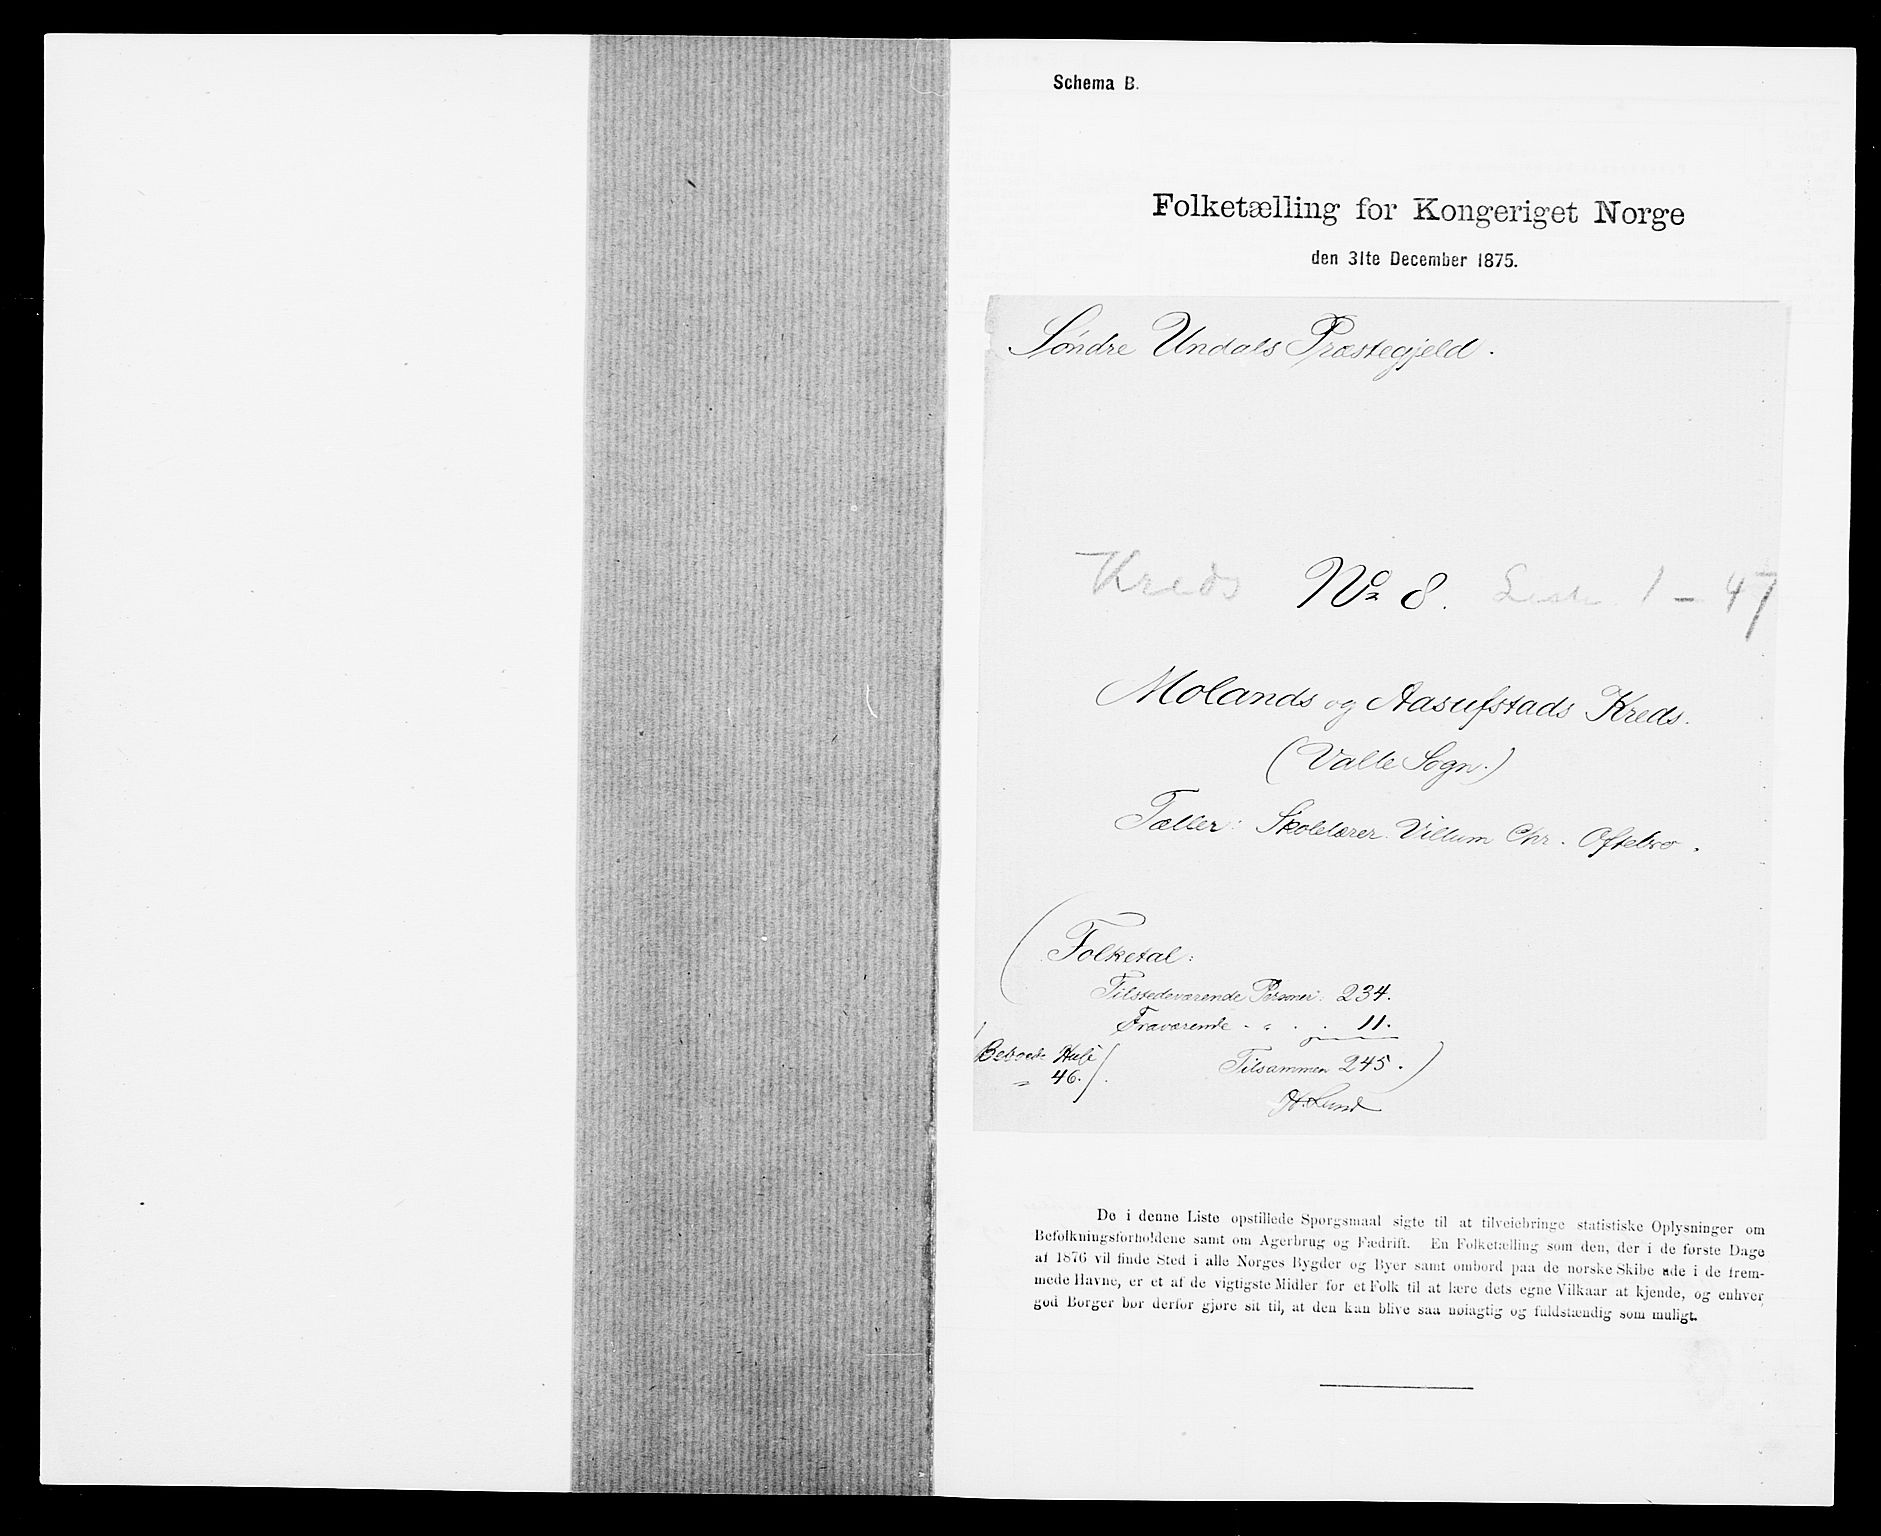 Schema B.
Folketælling for Kongeriget Norge
den 31te December 1875.
Søndre Undals Præstegjeld.
Kreds No 8. Liste 1 – 47
Molands og Aasufstads Kreds.
(Valle Sogn.)
Tæller: Skolelærer Villum Chr. Oftebro.
(Folketal:
Tilstedeværende Personer: 234.
Fraværende - " . . 11.
Tilsammen 245.)
(Beboede Huse
" 46.)
H. Lund
De i denne Liste opstillede Spørgsmaal sigte til at tilveiebringe statistiske Oplysninger om
Befolkningsforholdene samt om Agerbrug og Fædrift. En Folketælling som den, der i de første Dage
af 1876 vil finde Sted i alle Norges Bygder og Byer samt ombord paa de norske Skibe ude i de frem-
mede Havne, er et af de vigtigste Midler for et Folk til at lære dets egne Vilkaar at kjende, og enhver
god Borger bør derfor gjøre sit til, at den kan blive saa nøiagtig og fuldstændig som muligt.